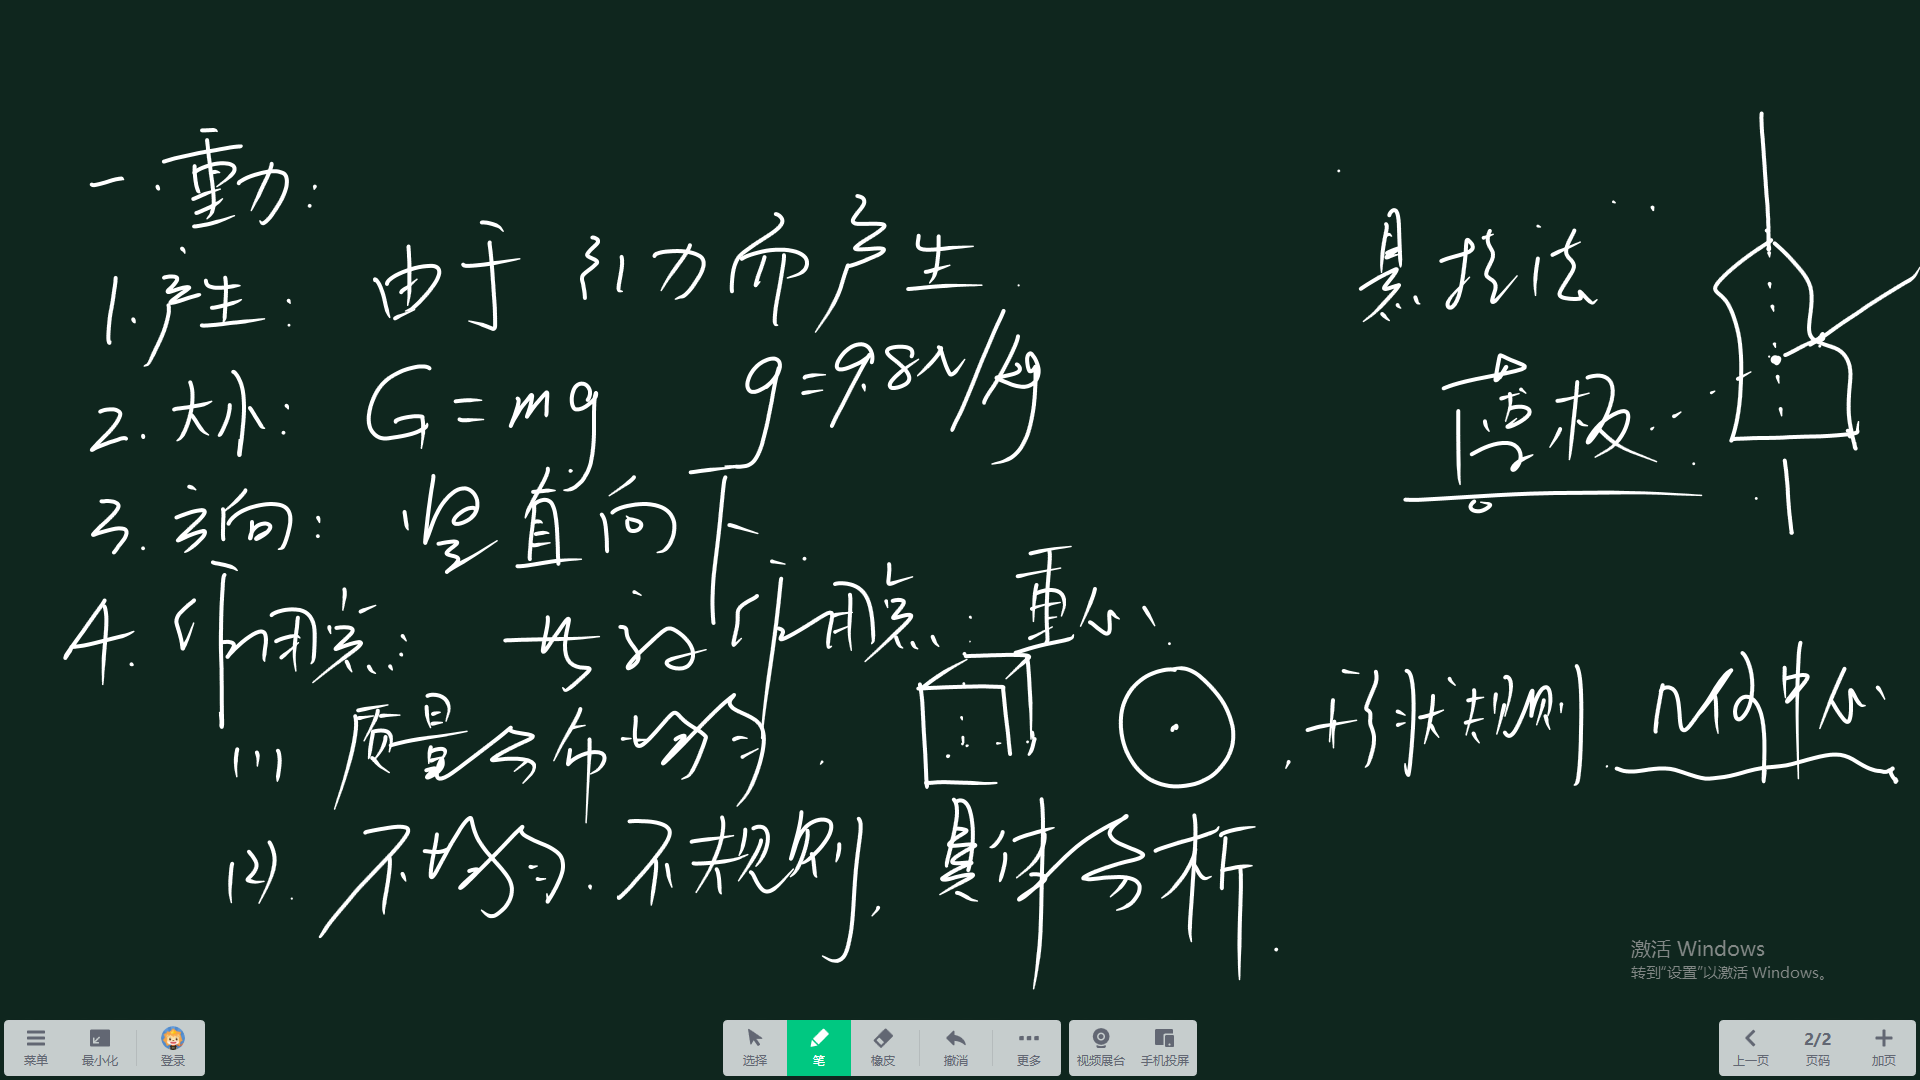 一.重力:
1.产生: 由于引力而产生.
2.大小: G=mg g=9.8N/kg
3.方向: 竖直向下
4.作用点: 共的作用点: 重心.
(1) 质量分布均匀. 形状规则. 几何中心
(2). 不均匀.不规则, 具体分析.
悬挂法
薄板.
激活 Windows
转到“设置”以激活 Windows。
菜单
最小化
登录
选择
笔
橡皮
撤消
更多
视频展台
手机投屏
上一页
2/2
页码
加页